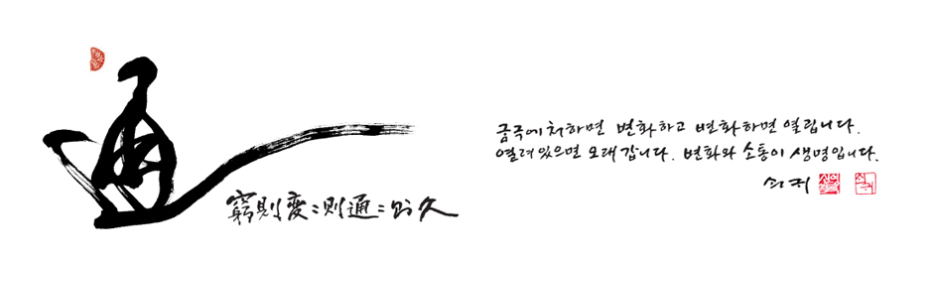 通
窮則變〻則通〻則久
궁극에 처하면 변화하고 변화하면 열립니다.
열려있으면 오래갑니다. 변화와 소통이 생명입니다.
쇠귀